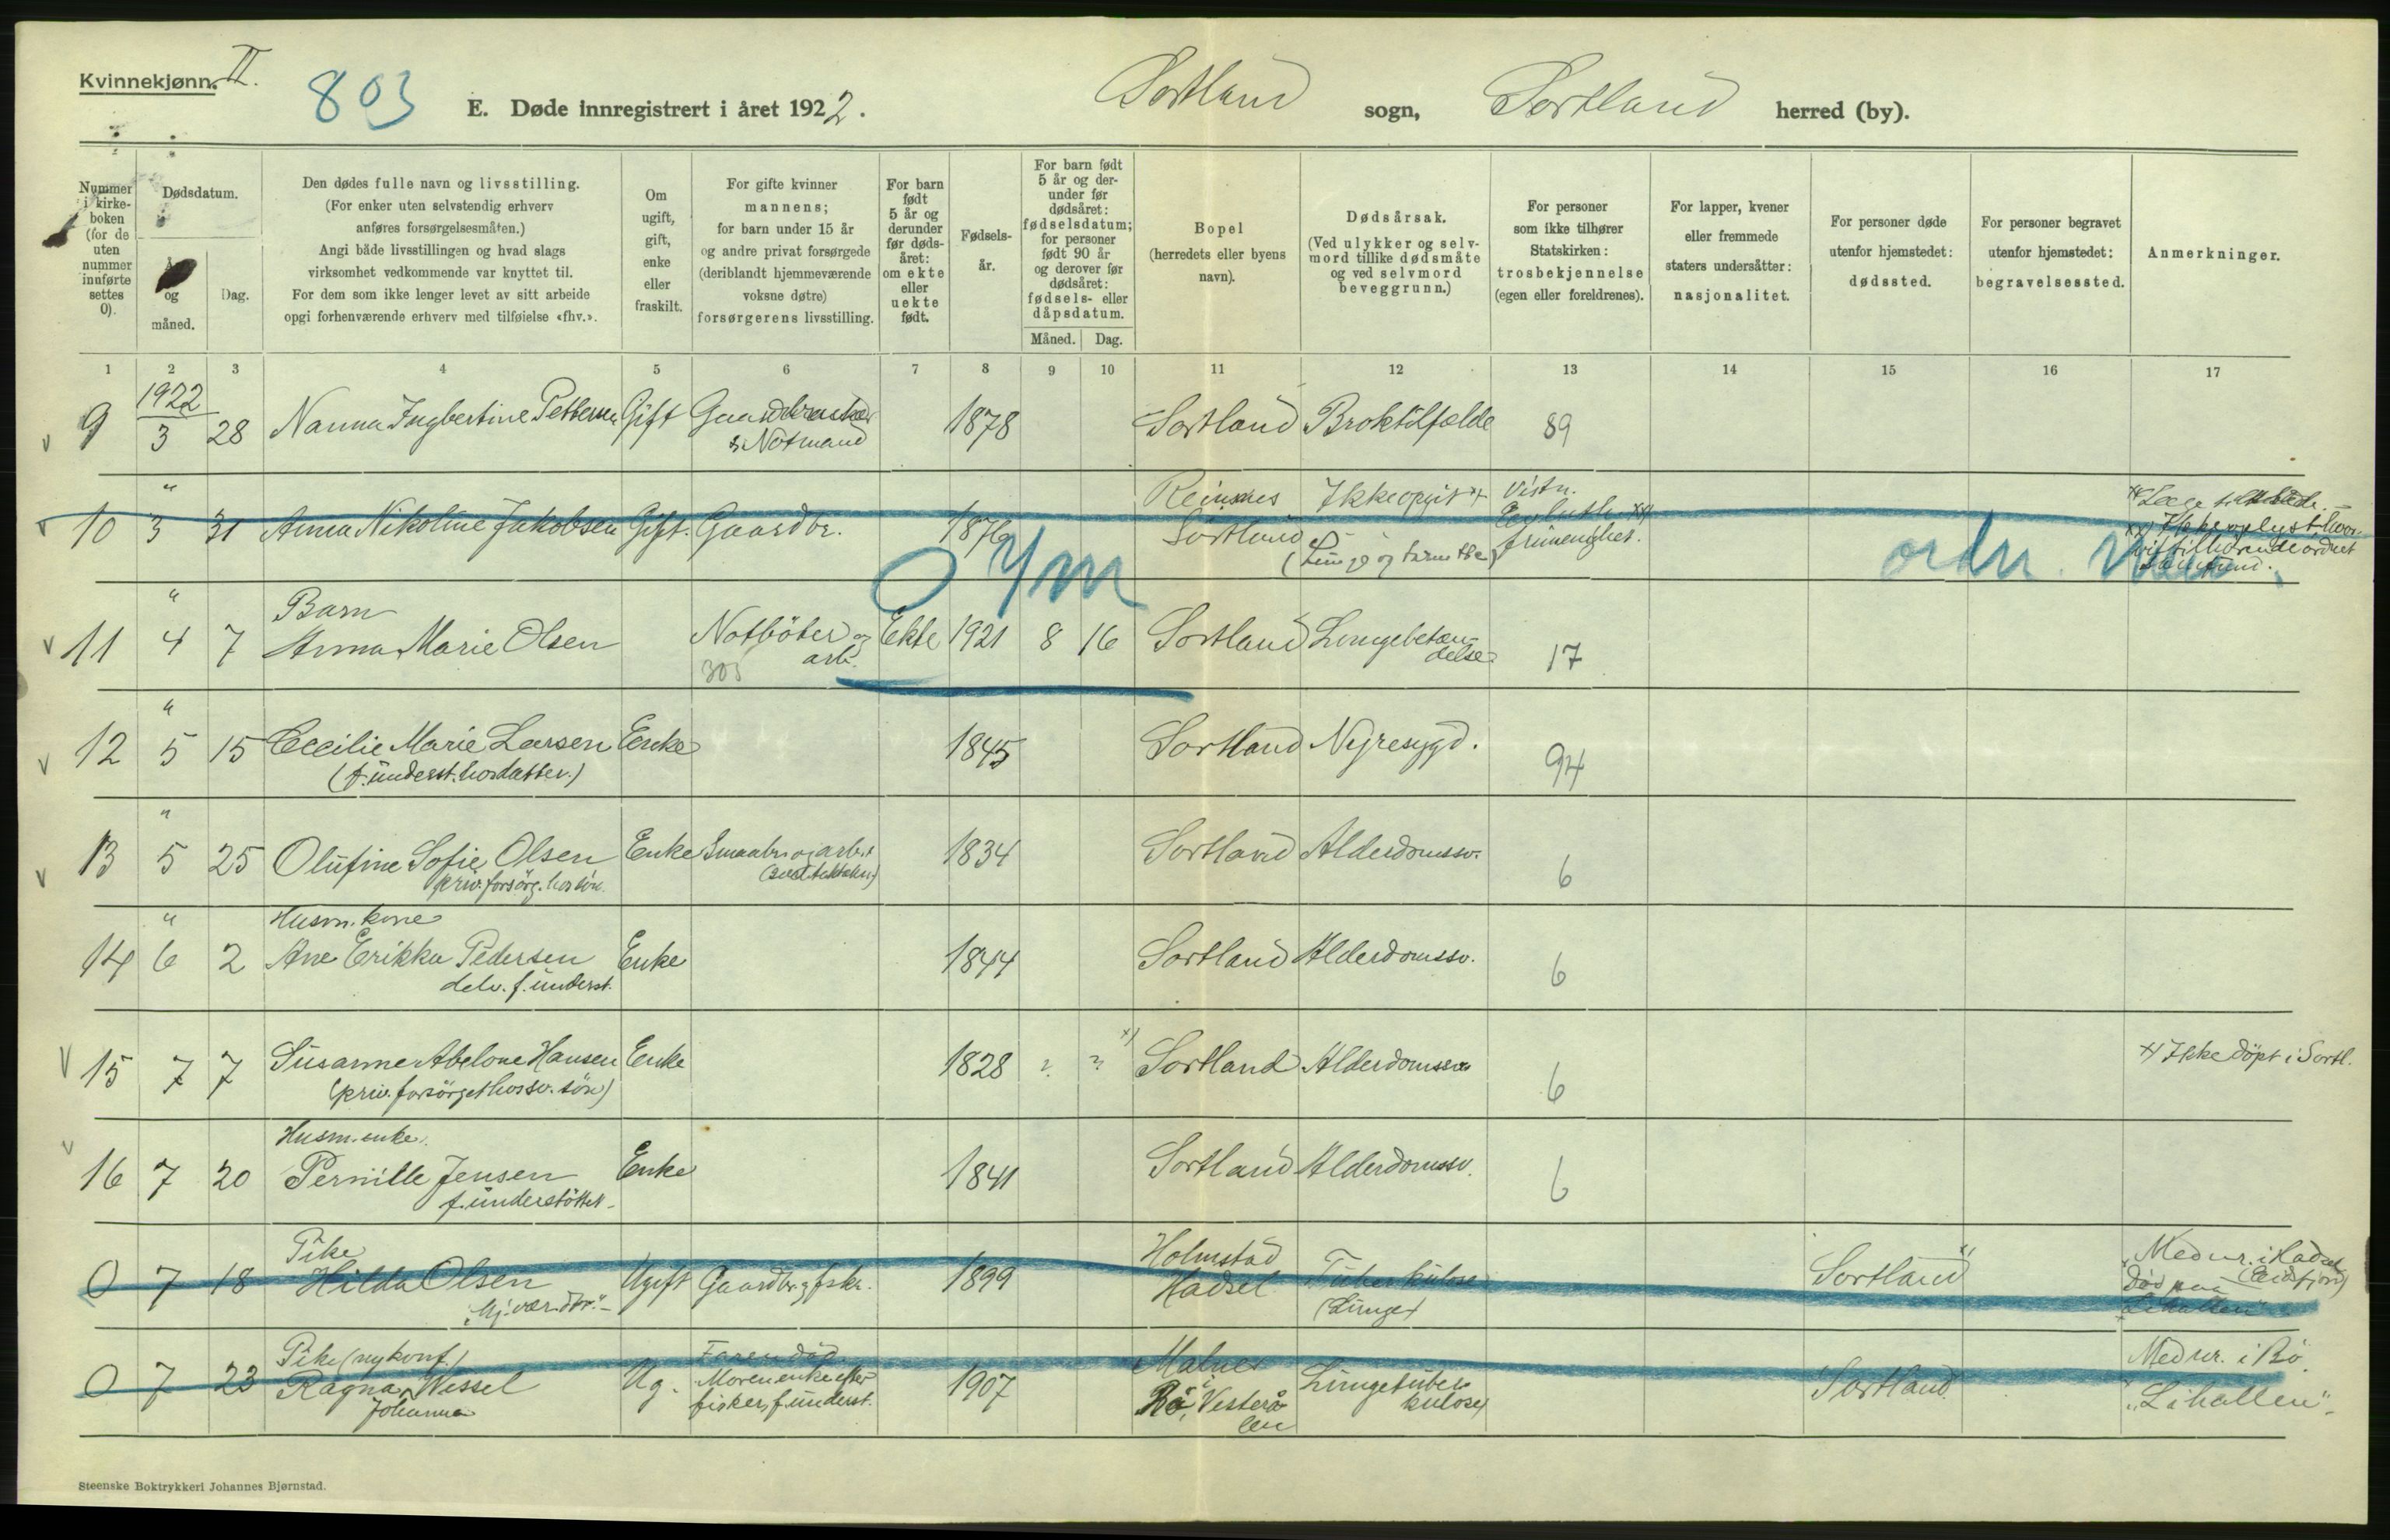 Kvinnekjønn. II.
803
E. Døde innregistrert i året 1922. Sortland sogn, Sortland herred (by).
Nummer i kirke-boken (for de uten nummer innførte settes 0).
Dødsdatum.
År og måned.
Dag.
Den dødes fulle navn og livsstilling.
(For enker uten selvstendig erhverv
anføres forsørgelsesmåten.)
Angi både livsstillingen og hvad slags
virksomhet vedkommende var knyttet til.
For dem som ikke lenger levet av sitt arbeide
opgi forhenværende erhverv med tilføielse «fhv.».
Om ugift, gift, enke eller fraskilt.
For gifte kvinner
mannens;
for barn under 15 år
og andre privat forsørgede
(deriblandt hjemmeværende
voksne døtre)
forsørgerens livsstilling.
For barn født 5 år og derunder før døds-året: om ekte eller uekte født.
Fødsels-år.
For barn født 5 år og der-under før dødsåret: fødselsdatum; for personer født 90 år og derover før dødsåret: fødsels- eller dåpsdatum.
Måned. Dag.
Bopel
(herredets eller byens
navn).
Dødsårsak.
(Ved ulykker og selv-
mord tillike dødsmåte
og ved selvmord
beveggrunn.)
For personer
som ikke tilhører
Statskirken:
trosbekjennelse
(egen eller foreldrenes).
For lapper, kvener
eller fremmede
staters undersåtter:
nasjonalitet.
For personer døde
utenfor hjemstedet:
dødssted.
For personer begravet
utenfor hjemstedet:
begravelsessted.
Anmerkninger.
1 2 3 4 5 6 7 8 9 10 11 12 13 14 15 16 17
1922
9 3 28 Nanna Ingbertine Pettersen Gift Gaardbruker 1878 Sortland Broktilfælde 89
& Notmand
" Reinsnes Ikke opgit x) Vistn.
10 3 31 Anna Nikoline Jakobsen Gift. Gaardbr. 1876 Sortland
frimenighet.
ordn.
" Barn
11 4 7 Anna Marie Olsen Notböter og arb. Ekte 1921 8 16 Sortland Lungebetændelse 17
303
"
12 5 15 Cecilie Marie Larsen Enke 1845 Sortland Nyresygd. 94
(f.underst. hos datter.)
"
13 5 25 Olufine Sofie Olsen Enke 1834 Sortland Alderdomssv. 6
priv. forsörg. hos sön.
" Husm. kone
14 6 2 Ane Erikka Pedersen Enke 1844 Sortland Alderdomssv. 6
delv. f. underst.
15 7 7 Susanne Abelone Hansen Enke 1828 ? ? x) Sortland Alderdomssv. 6 x) Ikke döpt i Sortl.
(priv. forsörget hos sv. sön)
Husm. enke.
16 7 20 Pernille Jensen Enke 1841 Sortland Alderdomssv. 6
f. understöttet
Pike Holmstad Medr. i Hadsel
0 7 18 Hilda Olsen Ugift Gaardbr. & fisker. 1899 Hadsel Tuberkulose Sortland x) (Eidsfjord)
"Hj. vær. dtr." (Lunge) död paa
"Lihallen"
Pike (nykonf.) Faren död. Malnes Medr. i Bö.
0 7 23 Ragna Wessel Ug. Moren enke efter 1907 Bö, Vesterålen Lungetuberkulose Sortland "Lihallen"
Johanna fisker, f. underst.
Steenske Boktrykkeri Johannes Bjørnstad.